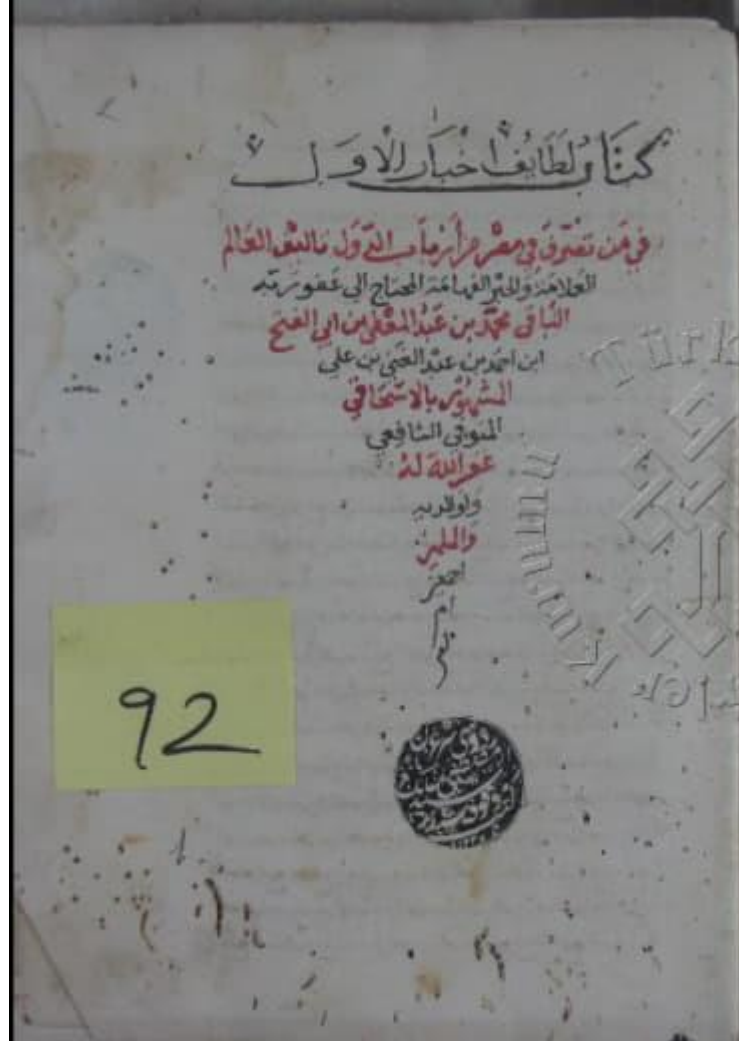 كتاب لطايف اخبار الاول
في من تصرف في مصر من أرباب الدول تاليف العالم
العلامة والحبر الفهامة المحتاج الى عفو ربه
الباقي محمد بن عبد المعطي بن ابي الفتح
ابن احمد بن عبد الغني بن علي
المشهور بالاسحاقي
المنوفي الشافعي
غفر الله له
ولوالديه
والمسلمين
اجمعين
92
Türk